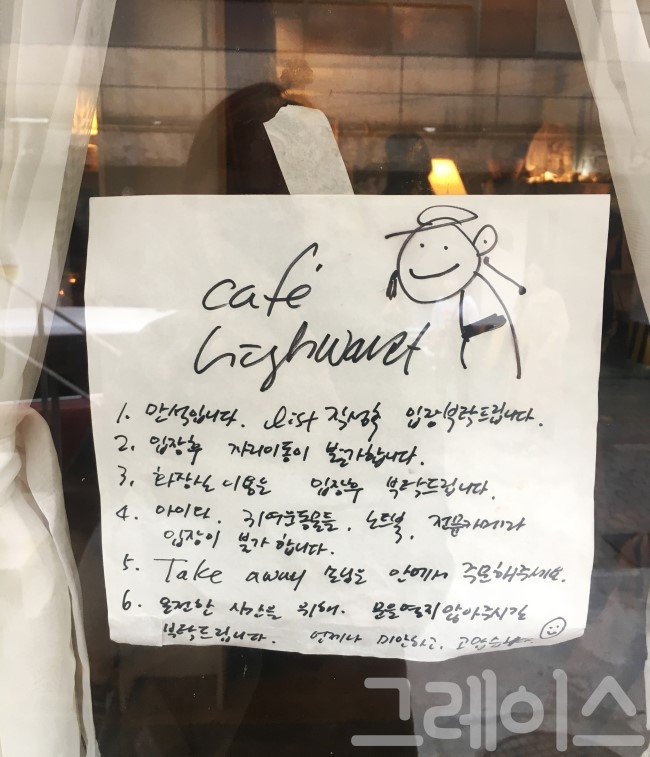 café
highwaist
1. 만석입니다. list 작성후 입장부탁드립니다.
2. 입장후 자리이동이 불가합니다.
3. 화장실 이용은 입장후 부탁드립니다.
4. 아이다. 귀여운동물들. 노트북. 전문카메라
입장이 불가합니다.
5. Take away 손님은 안에서 주문해주세요.
6. 온전한 시간을 위해. 문을열지않아주시길
부탁드립니다. 언제나 미안하고. 고맙습니다
그레이스